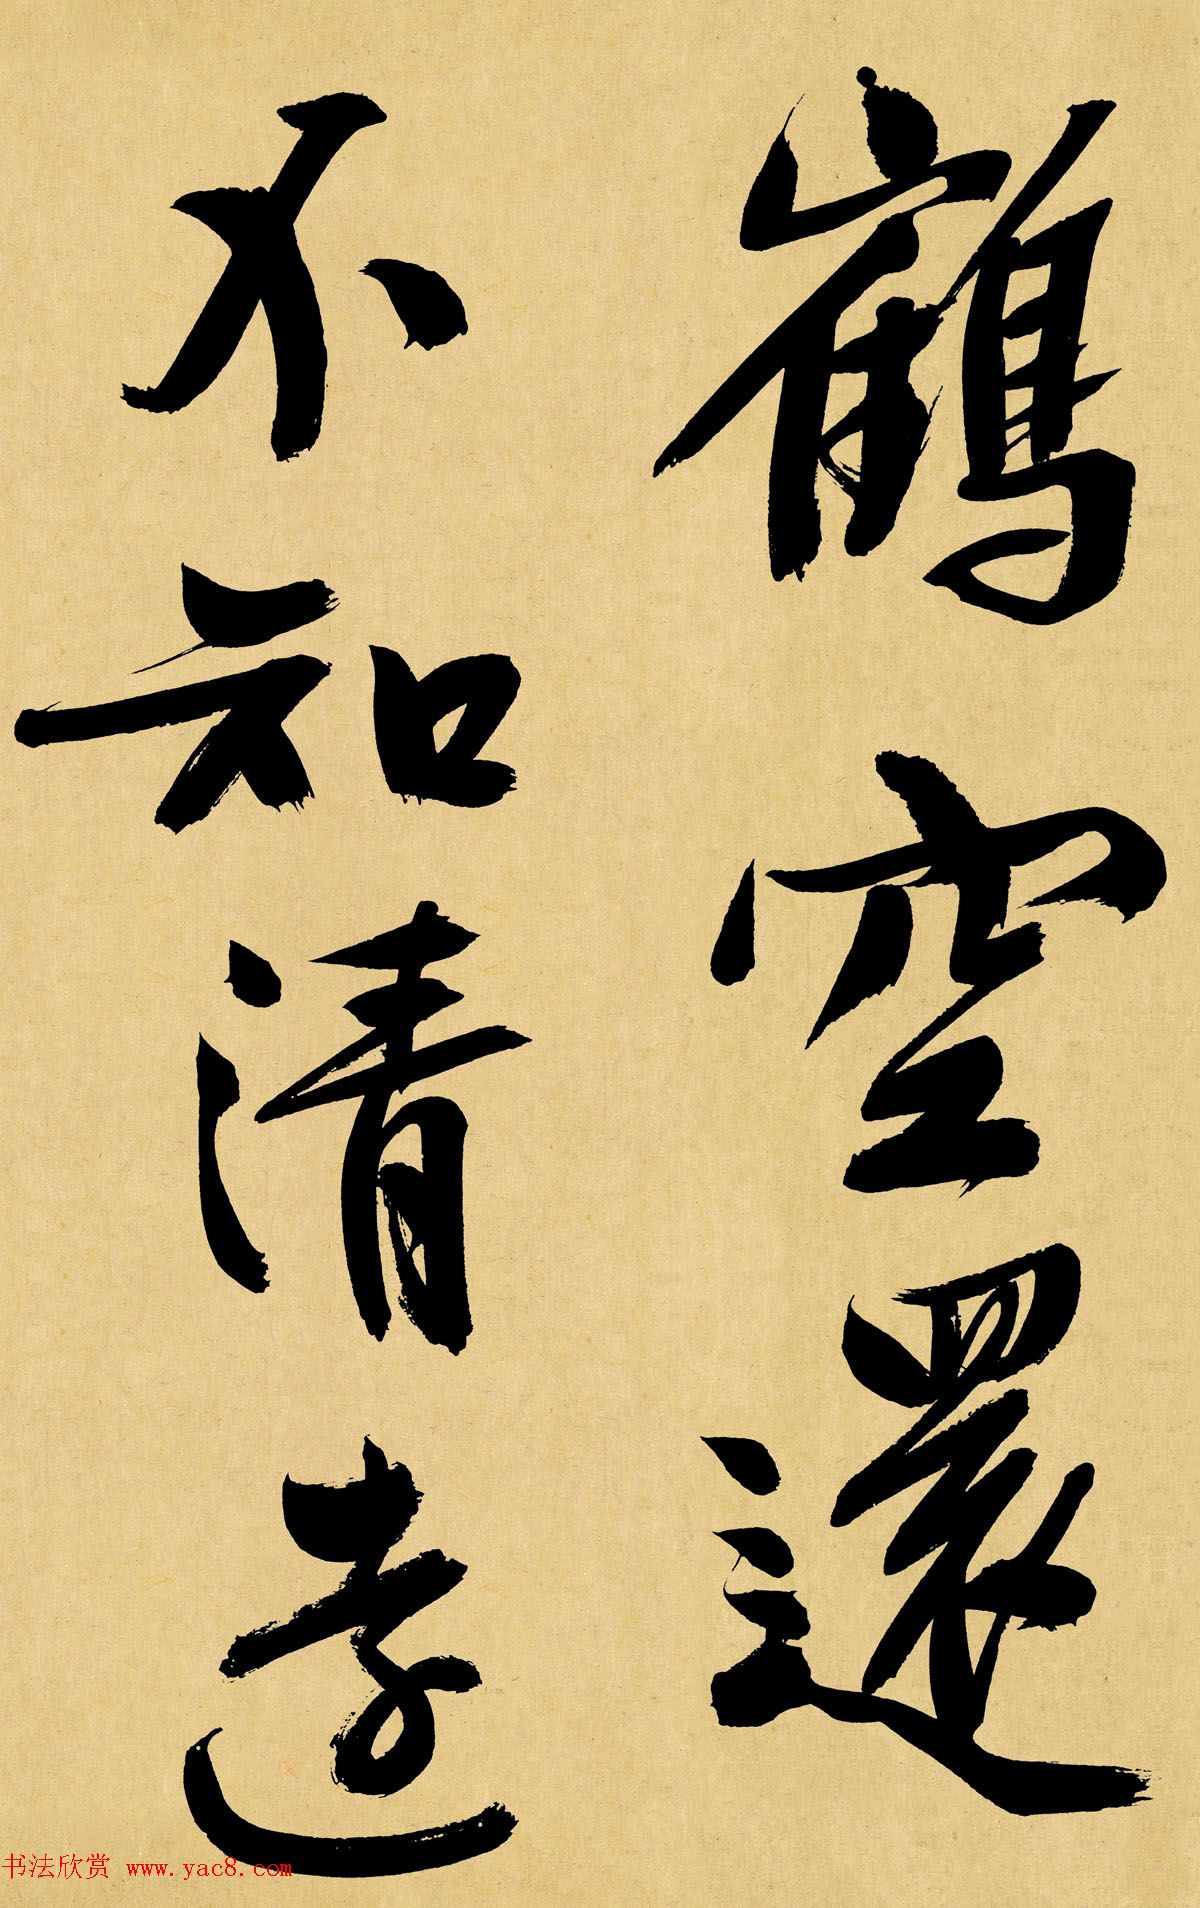 鶴空還
不知清遠
书法欣赏 www.yac8.com